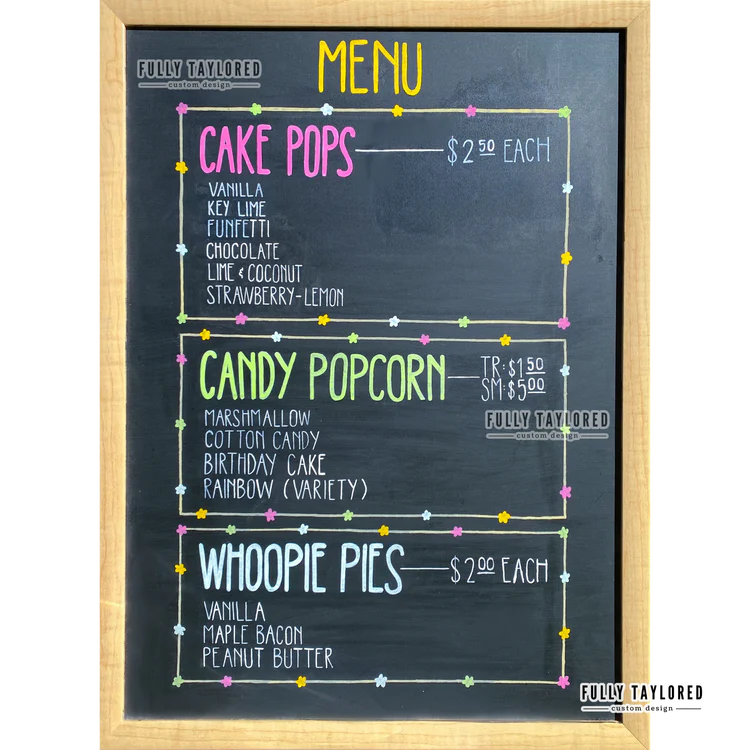 MENU
FULLY TAYLORED
custom design
CAKE POPS $2.50 EACH
VANILLA
KEY LIME
FUNFETTI
CHOCOLATE
LIME & COCONUT
STRAWBERRY-LEMON
CANDY POPCORN TR: $1.50
SM: $5.00
MARSHMALLOW
COTTON CANDY
BIRTHDAY CAKE
RAINBOW (VARIETY)
FULLY TAYLORED
custom design
WHOOPIE PIES $2.00 EACH
VANILLA
MAPLE BACON
PEANUT BUTTER
FULLY TAYLORED
custom design